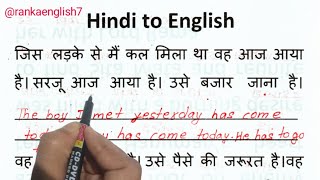 @rankaenglish7
Hindi to English
जिस लड़के से मैं कल मिला था वह आज आया
है। सरजू आज आया है। उसे बजार जाना है।
The boy I met yesterday has come
today. has come today. He has to go
वह है। उसे पैसे की जरूरत है। वह